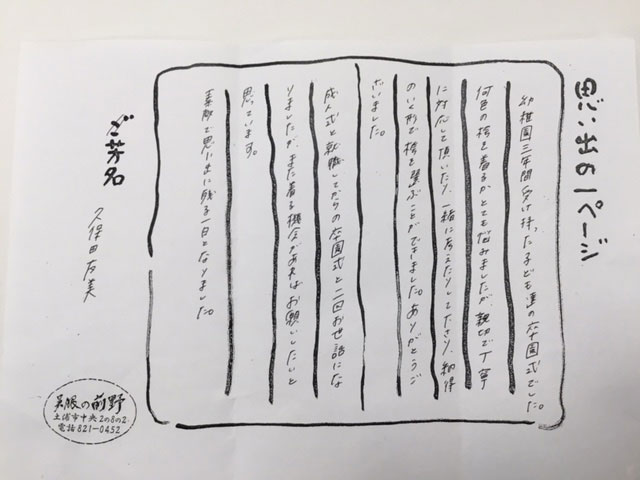 思い出の1ページ
幼稚園三年間受け持った子ども達の卒園式でした。
何色の袴を着るかとても悩みましたが、親切で丁寧
に対応して頂いたり、一緒に考えたりしてくださり、納得
のいく形で袴を選ぶことができました。ありがとうご
ざいました。
成人式と就職してからの卒園式と二回お世話にな
りましたが、また着る機会があればお願いしたいと
思っています。
素敵で思い出に残る一日となりました。
ご芳名
久保田友美
呉服の前野
土浦市中央2の8の2
電話821-0452